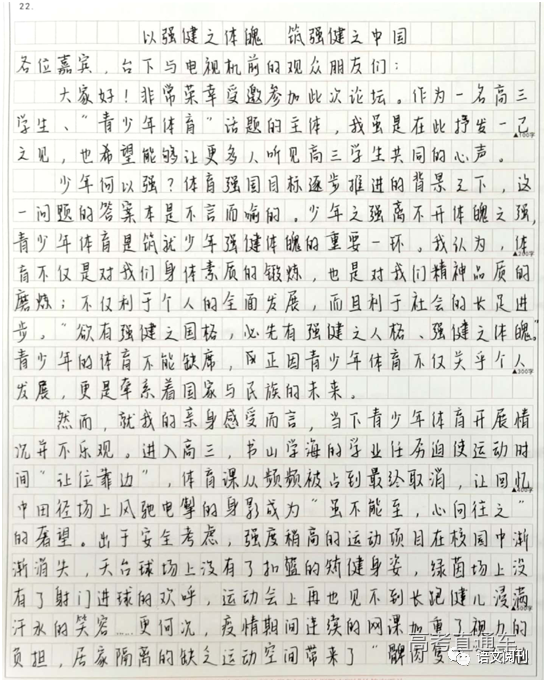 22.
以强健之体魄 筑强健之中国
各位嘉宾，台下与电视机前的观众朋友们：
大家好！非常荣幸受邀参加此次论坛。作为一名高三
学生、“青少年体育”话题的主体，我虽是在此抒发一己
之见，也希望能够让更多人听见高三学生共同的心声。
少年何以强？体育强国目标逐步推进的背景之下，这
一问题的答案本是不言而喻的。少年之强离不开体魄之强，
青少年体育是筑就少年强健体魄的重要一环。我认为，体
育不仅是对我们身体素质的锻炼，也是对我们精神品质的
磨炼；不仅利于个人的全面发展，而且利于社会的长足进
步。“欲有强健之国格，必先有强健之人格、强健之体魄。”
青少年的体育不能缺席，正因青少年体育不仅关乎个人
发展，更是牵系着国家与民族的未来。
然而，就我的亲身感受而言，当下青少年体育开展情
况并不乐观。进入高三，书山学海的学业任务迫使运动时
间“让位靠边”，体育课从频频被占到最终取消，让回忆
中田径场上风驰电掣的身影成为“虽不能至，心向往之”
的奢望。出于安全考虑，强度稍高的运动项目在校园中渐
渐消失，天台球场上没有了扣篮的矫健身姿，绿茵场上没
有了射门进球的欢呼，运动会上再也见不到长跑健儿浸满
汗水的笑容……更何况，疫情期间连续的网课加重了视力的
负担，居家隔离的缺乏运动空间带来了“
▲100字
▲200字
▲300字
▲400字
高考直通车
语文月刊